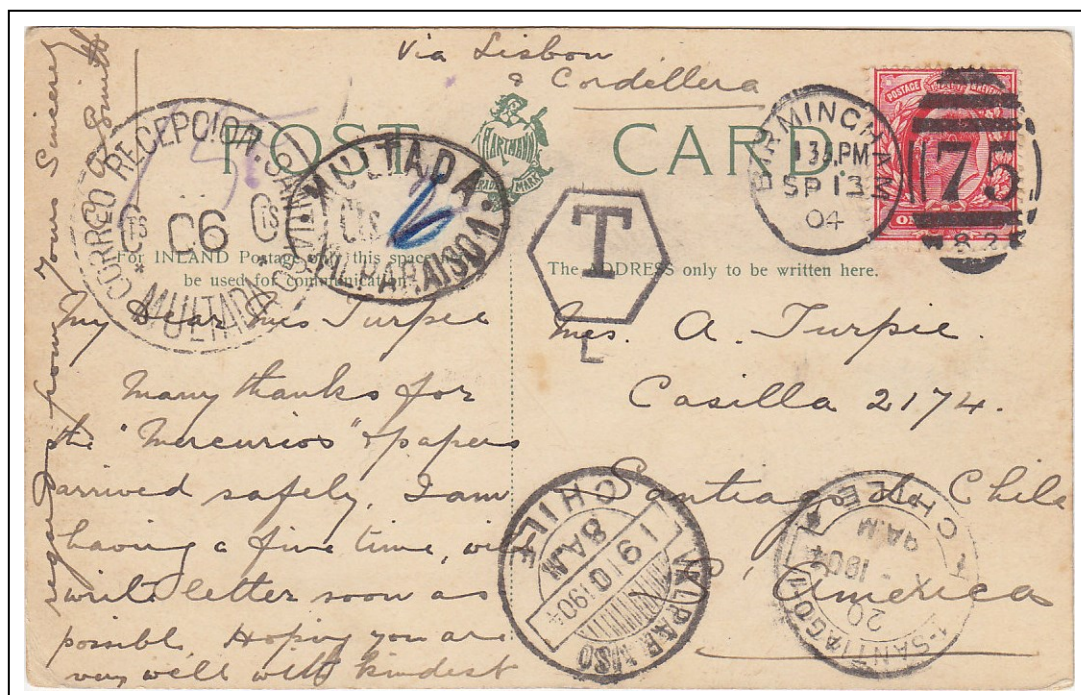 Via Lisbon
& Cordillera
POST CARD
HARTMANN
TRADE MARK
BIRMINGHAM
1 35 PM
SP 13
04
75
POSTAGE
CORREO RECEPCION. SANTIAGO
Cts 06 Cts
* MULTADA *
MULTADA.
Cts 2
VALPARAISO 1
T
L
For INLAND Postage only this space may
be used for communication.
The ADDRESS only to be written here.
My Dear Mrs Turpie
Many thanks for
the "Mercurios" & papers
arrived safely, I am
having a fine time, will
write letter soon as
possible. Hoping you are
very well with kindest
regards from Yours Sincerely
Smith
Mrs. A. Turpie.
Casilla 2174.
Santiago de Chile
S. America
VALPARAISO
19 10 1904
8 A.M
CHILE
SANTIAGO
20
1904
9 A.M
CHILE